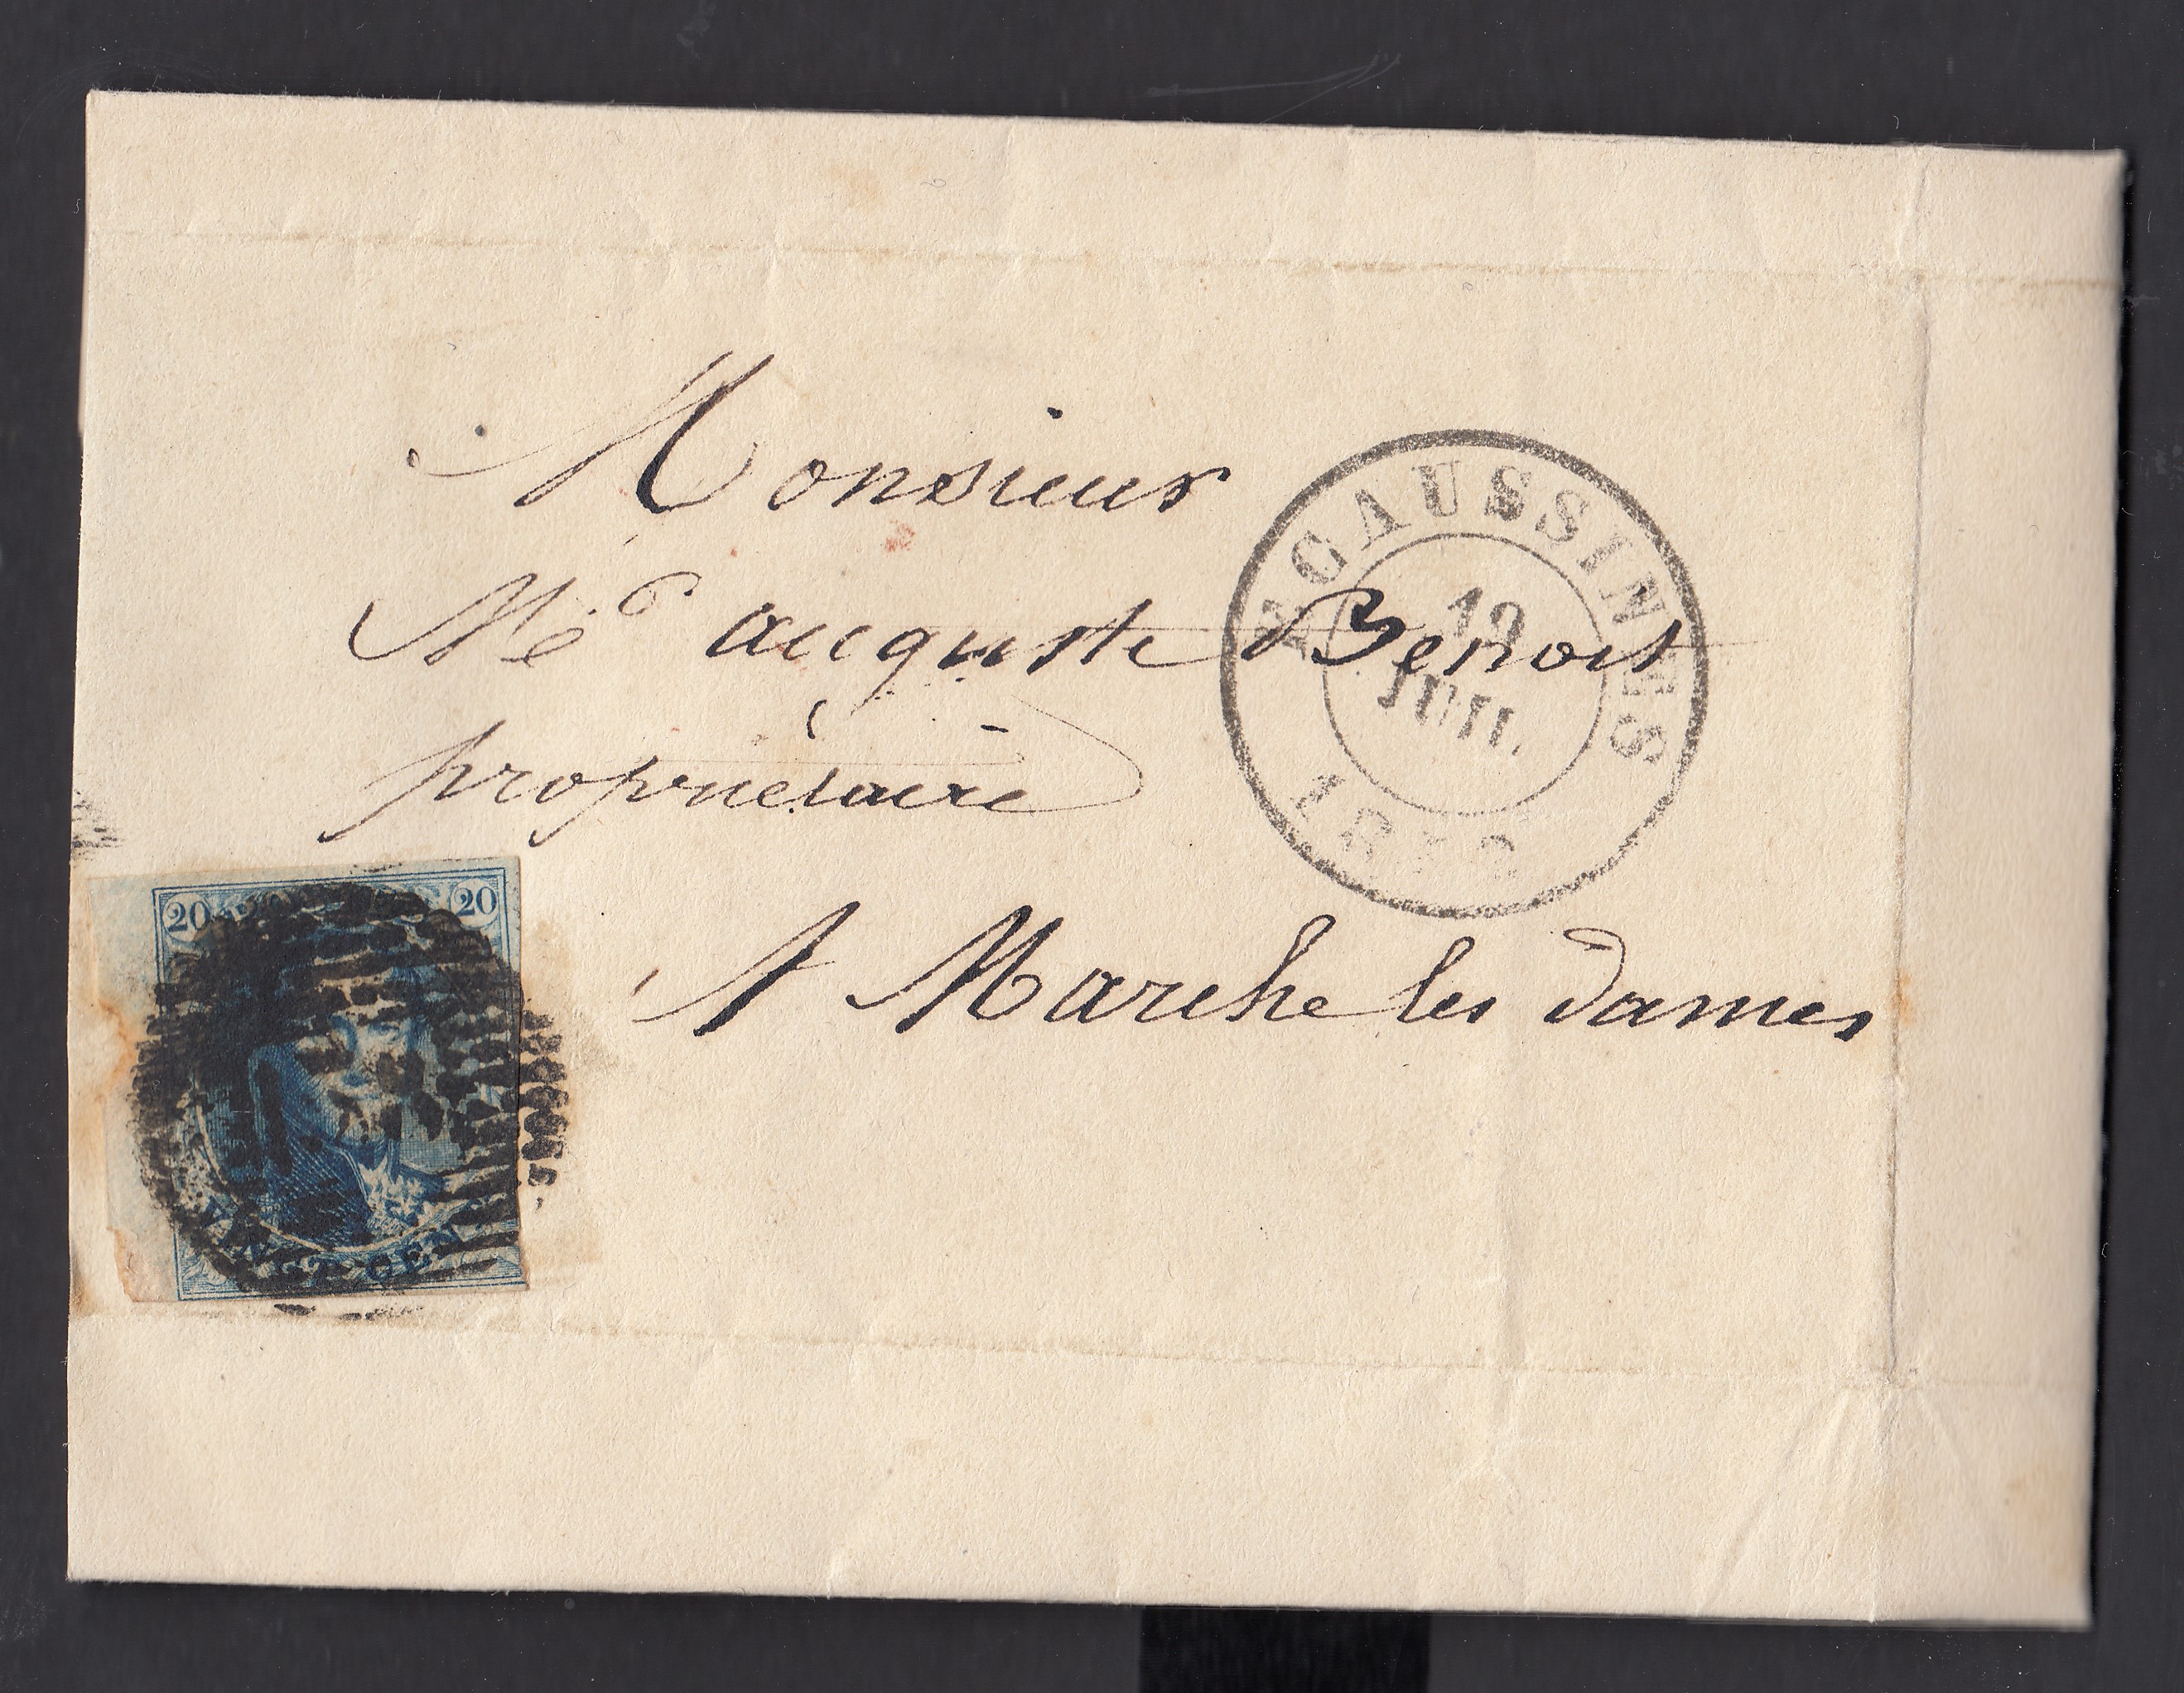 Monsieur
Mé auguste Benoit
propriétaire
A Marche les dames
ECAUSSINES
12
JUIL.
20 20
VINGT CEN